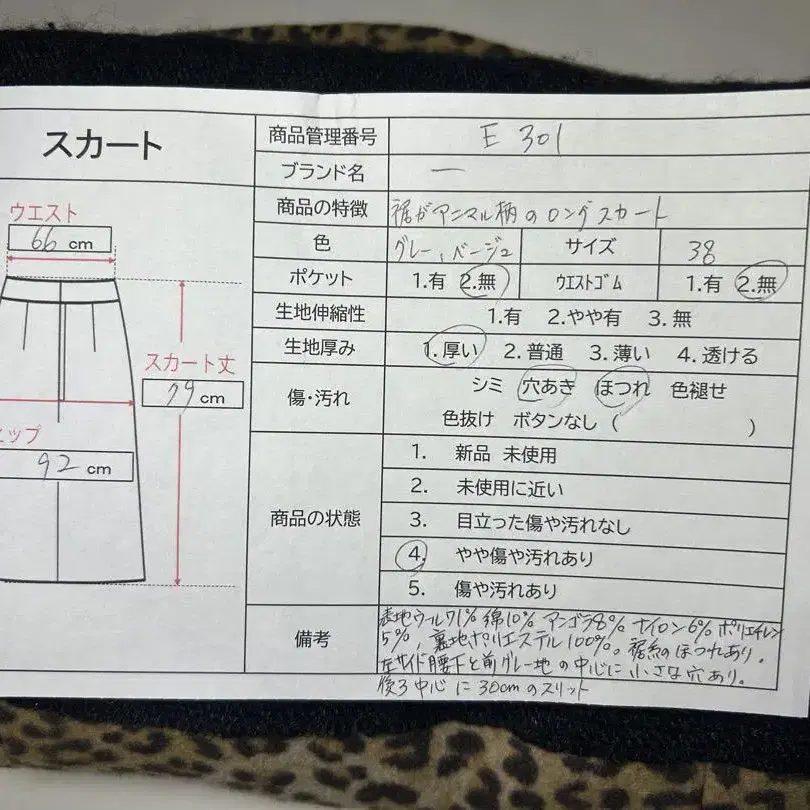 スカート
商品管理番号 E 301
ブランド名 ー
商品の特徴 裾がアニマル柄のロングスカート
ウエスト
66 cm
色 グレー、ベージュ サイズ 38
ポケット 1.有 2.無 ウエストゴム 1.有 2.無
生地伸縮性 1.有 2.やや有 3.無
生地厚み 1.厚い 2.普通 3.薄い 4.透ける
スカート丈
79 cm
傷・汚れ シミ 穴あき ほつれ 色褪せ
色抜け ボタンなし ( )
ヒップ
92 cm
商品の状態
1. 新品 未使用
2. 未使用に近い
3. 目立った傷や汚れなし
4. やや傷や汚れあり
5. 傷や汚れあり
備考
表地ウール71% 綿10% アンゴラ8% ナイロン6% ポリエチレン
5%、裏地ポリエステル100%。裾糸のほつれあり。
左サイド腰下と前グレー地の中心に小さな穴あり。
後ろ中心に30cmのスリット